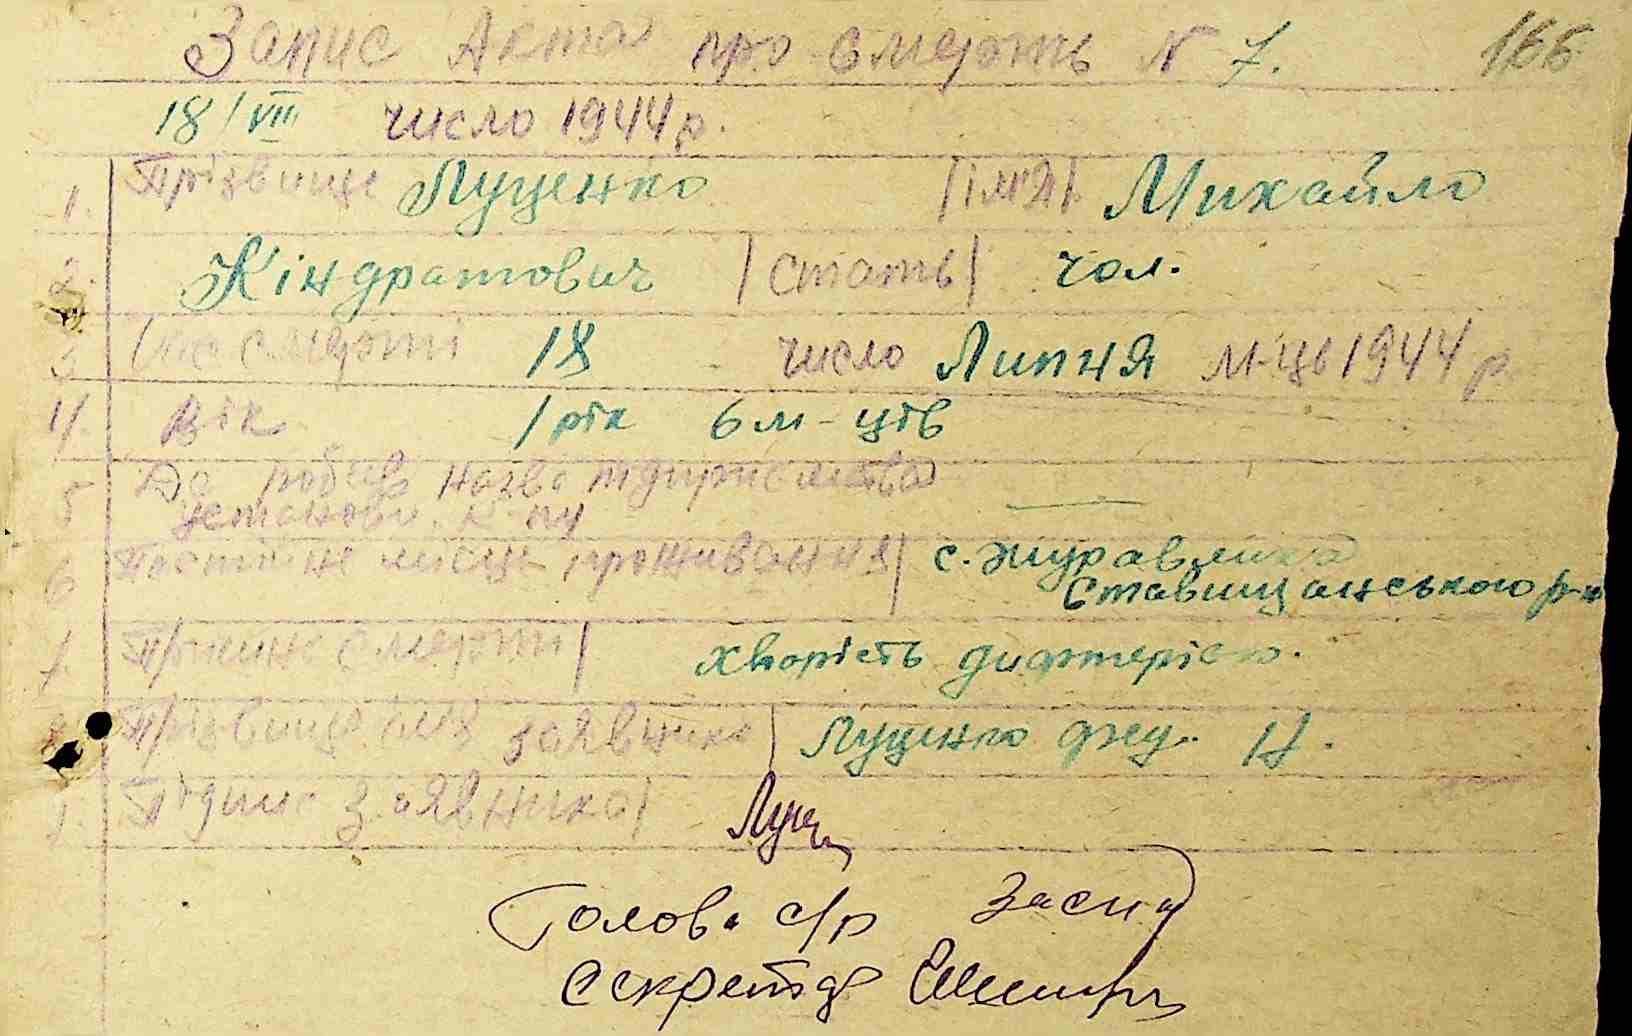 Запис Акта про смерть N 7. 166
18/VIII число 1944 р.
1. Прізвище Луценко /імя/. Михайло
2. Кіндратович /стать/ чол.
3 Час смерті 18 число Липня м-ць 1944 р.
4. Вік 1 рік 6 м-ців
5 Де робив назва підприємства —
установи. к-пу
6 Постійне місце проживання/ с. Журавлиха
Ставищанського р-н
7. Причина смерти/ хворість дифтерією.
8 Прізвище імя заявника/ Луценко
9. Підпис заявника/ Луц
Голова с/р
Секретар